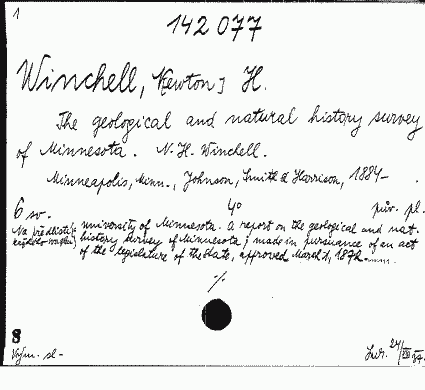 1
142 077
Winchell, Newton] H.
The geological and natural history survey
of Minnesota. N. H. Winchell.
Minneapolis, Minn., Johnson, Smith & Harrison, 1884-
6 sv. 4° pův. pl.
Na předlistě: university of Minnesota. A report on the geological and nat.
history survey of Minnesota; made in pursuance of an act
of the legislature of the State, approved March 1, 1872.
·/.
8
sl-
Inv. 24/